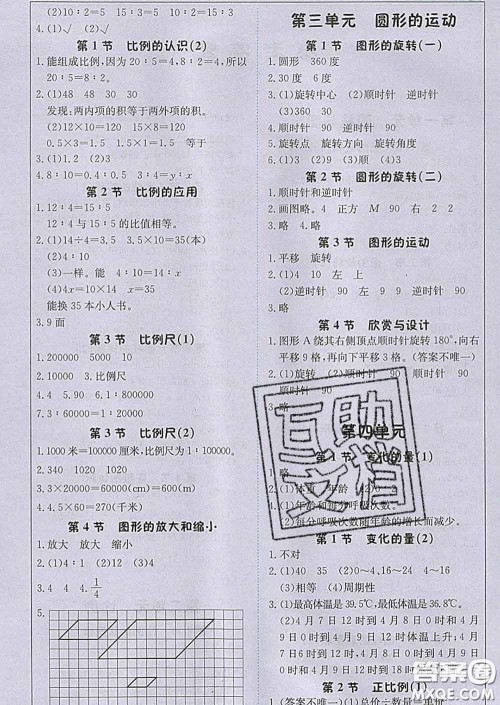 (2)10∶2=5　10∶2=5
4.(1)√　(2)√
第1节　比例的认识(2)
1.能组成比例,因为20∶5=4,8∶2=4,所以
20∶5=8∶2。
2.(1)48　48　30　30
发现:两内项的积等于两外项的积。
(2)12×10=120　15×8=120
0.5×3=1.5　1.5×1=1.5　等于
3.(1)4　(2)1.2　(2)3
4.8∶10=0.4∶0.5　3∶4=y∶x
第2节　比例的应用
1.12∶4=15∶5
12∶4与15∶5的比值相等。
2.(1)14÷4=3.5　3.5×10=35(本)
(2)4∶10=14∶35
(3)一样。能　4∶10=14∶x
(4)4x=10×14　4x=140　x=35
能换35本小人书。
3.9面
第3节　比例尺(1)
1.200000　5000　10
2.10000　3.比例尺
4.4　5.90　6.1∶800000
7.3∶60000=1∶20000
第3节　比例尺(2)
1.1000米=100000厘米,比例尺为1∶100000。
2.4　1020　1020
3.3×20000=60000(cm)=600(m)
4.4.5×60=270(千米)
第4节　图形的放大和缩小
1.放大　放大　缩小
2.(1)4∶1　(2)12　(3)4
3.4　4　4.1/4
5.
第三单元　圆形的运动
第1节　图形的旋转(一)
1.圆形　360度
2.30度　6度
3.(1)旋转中心　(2)顺时针　逆时针
(3)360　30
4.顺时针　90　逆时针　90
5.旋转点　旋转方向　旋转角度
6.(1)3　(2)9　(3)顺　(4)3
第2节　圆形的旋转(二)
1.顺时针和逆时针
2.画图略。4　正方　M　90　右　2　2
3.略
第3节　图形的运动
1.平移　旋转
2.(1)4　10　左　上
(2)逆时针　90　(3)逆时针　90　左　9
3.略
第4节　欣赏与设计
1.图形A绕其右侧顶点顺时针旋转180°,向右
平移9格,再向下平移3格。(答案不唯一)
2.(1)旋转　(2)顺时针　90　顺时针　90
顺时针　90
3.略
第四单元
第1节　变化的量(1)
1.略
2.(1)体重　年龄　(2)2　2
4.(1)年龄和每分呼吸次数。
(2)每分呼吸次数随年龄的增长而减少。
第1节　变化的量(2)
1.不对
2.(1)40　35　(2)0~4、16~24　4~16
(3)相等　(4)周期性
3.(1)最高体温是39.5℃,最低体温是36.8℃。
(2)4月7日12时到4月8日0时和4月
9日0时到4月9日12时体温上升;4月
8日0时到4月8日12时、4月8日12时
到4月9日0时和4月9日12时到
第2节　正比例(1)
1.(答案不唯一)(1)总价÷数量=单价
互助
文档
答案圈
MXQE.COM